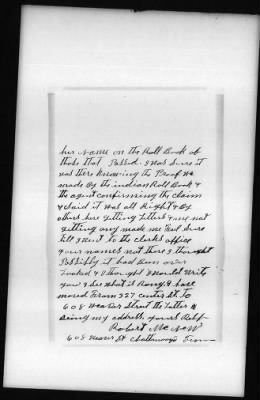 her Name on the Roll Book of
those that Passed. I was Sure it
was there Knowing the Proof we
made by the indian Roll Book &
the agent confirming the claim
& Said it was all Right & By
others here getting Letters & me not
getting any made me Feel Sure
till I Went to the clerks office
your names not there I thought
Possibly it had Been over
Looked & I thought I Would Write
you & See what is Rong. I have
moved From 227 center St. To
608 Weaver Street the Latter is
Being my address, yours Resp
Robert McNew
608 Weaver St Chattanooga Tenn